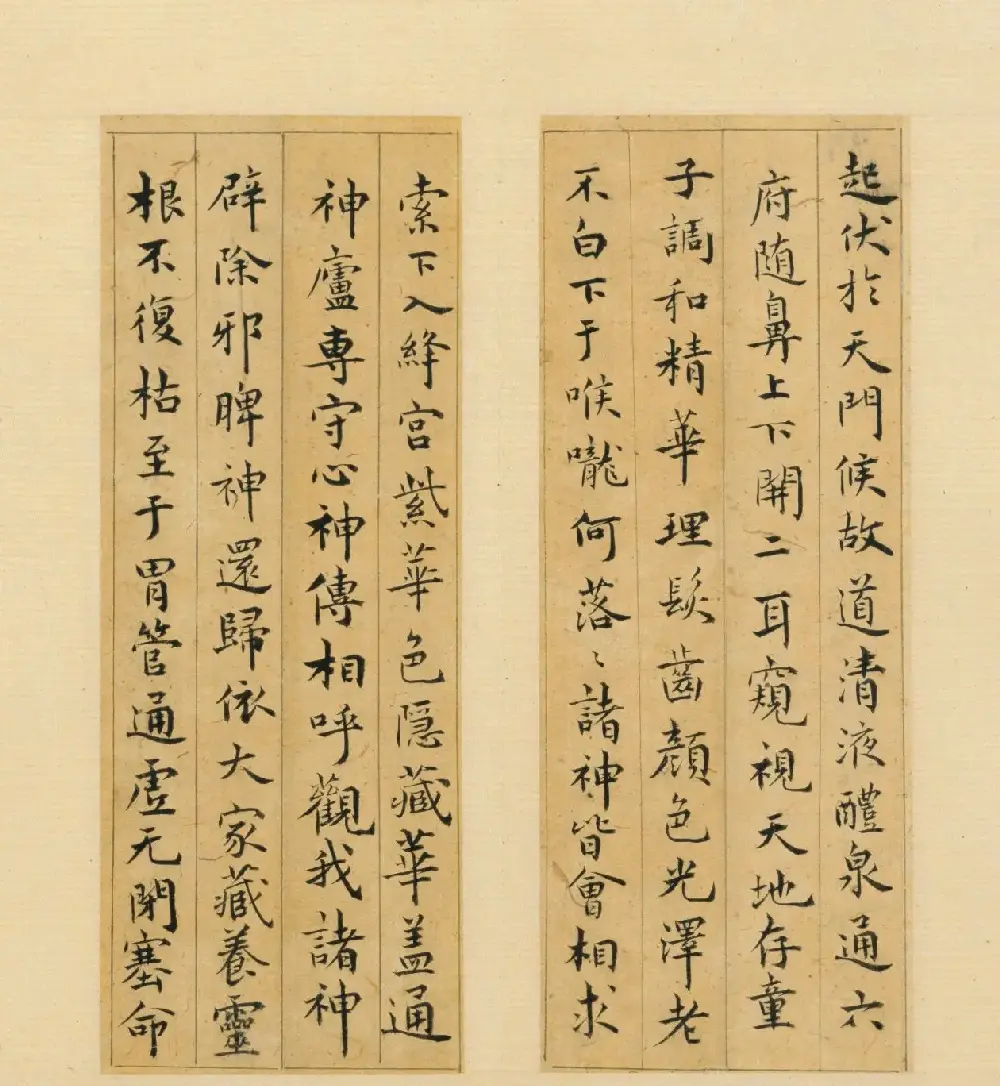 起伏於天門候故道清液醴泉通六
府随鼻上下開二耳窺視天地存童
子調和精華理髮齒顏色光澤老
不白下于喉嚨何落〻諸神皆會相求
索下入絳宮紫華色隱藏華盖通
神廬專守心神傳相呼觀我諸神
辟除邪脾神還歸依大家藏養靈
根不復枯至于胃管通虛无閉塞命